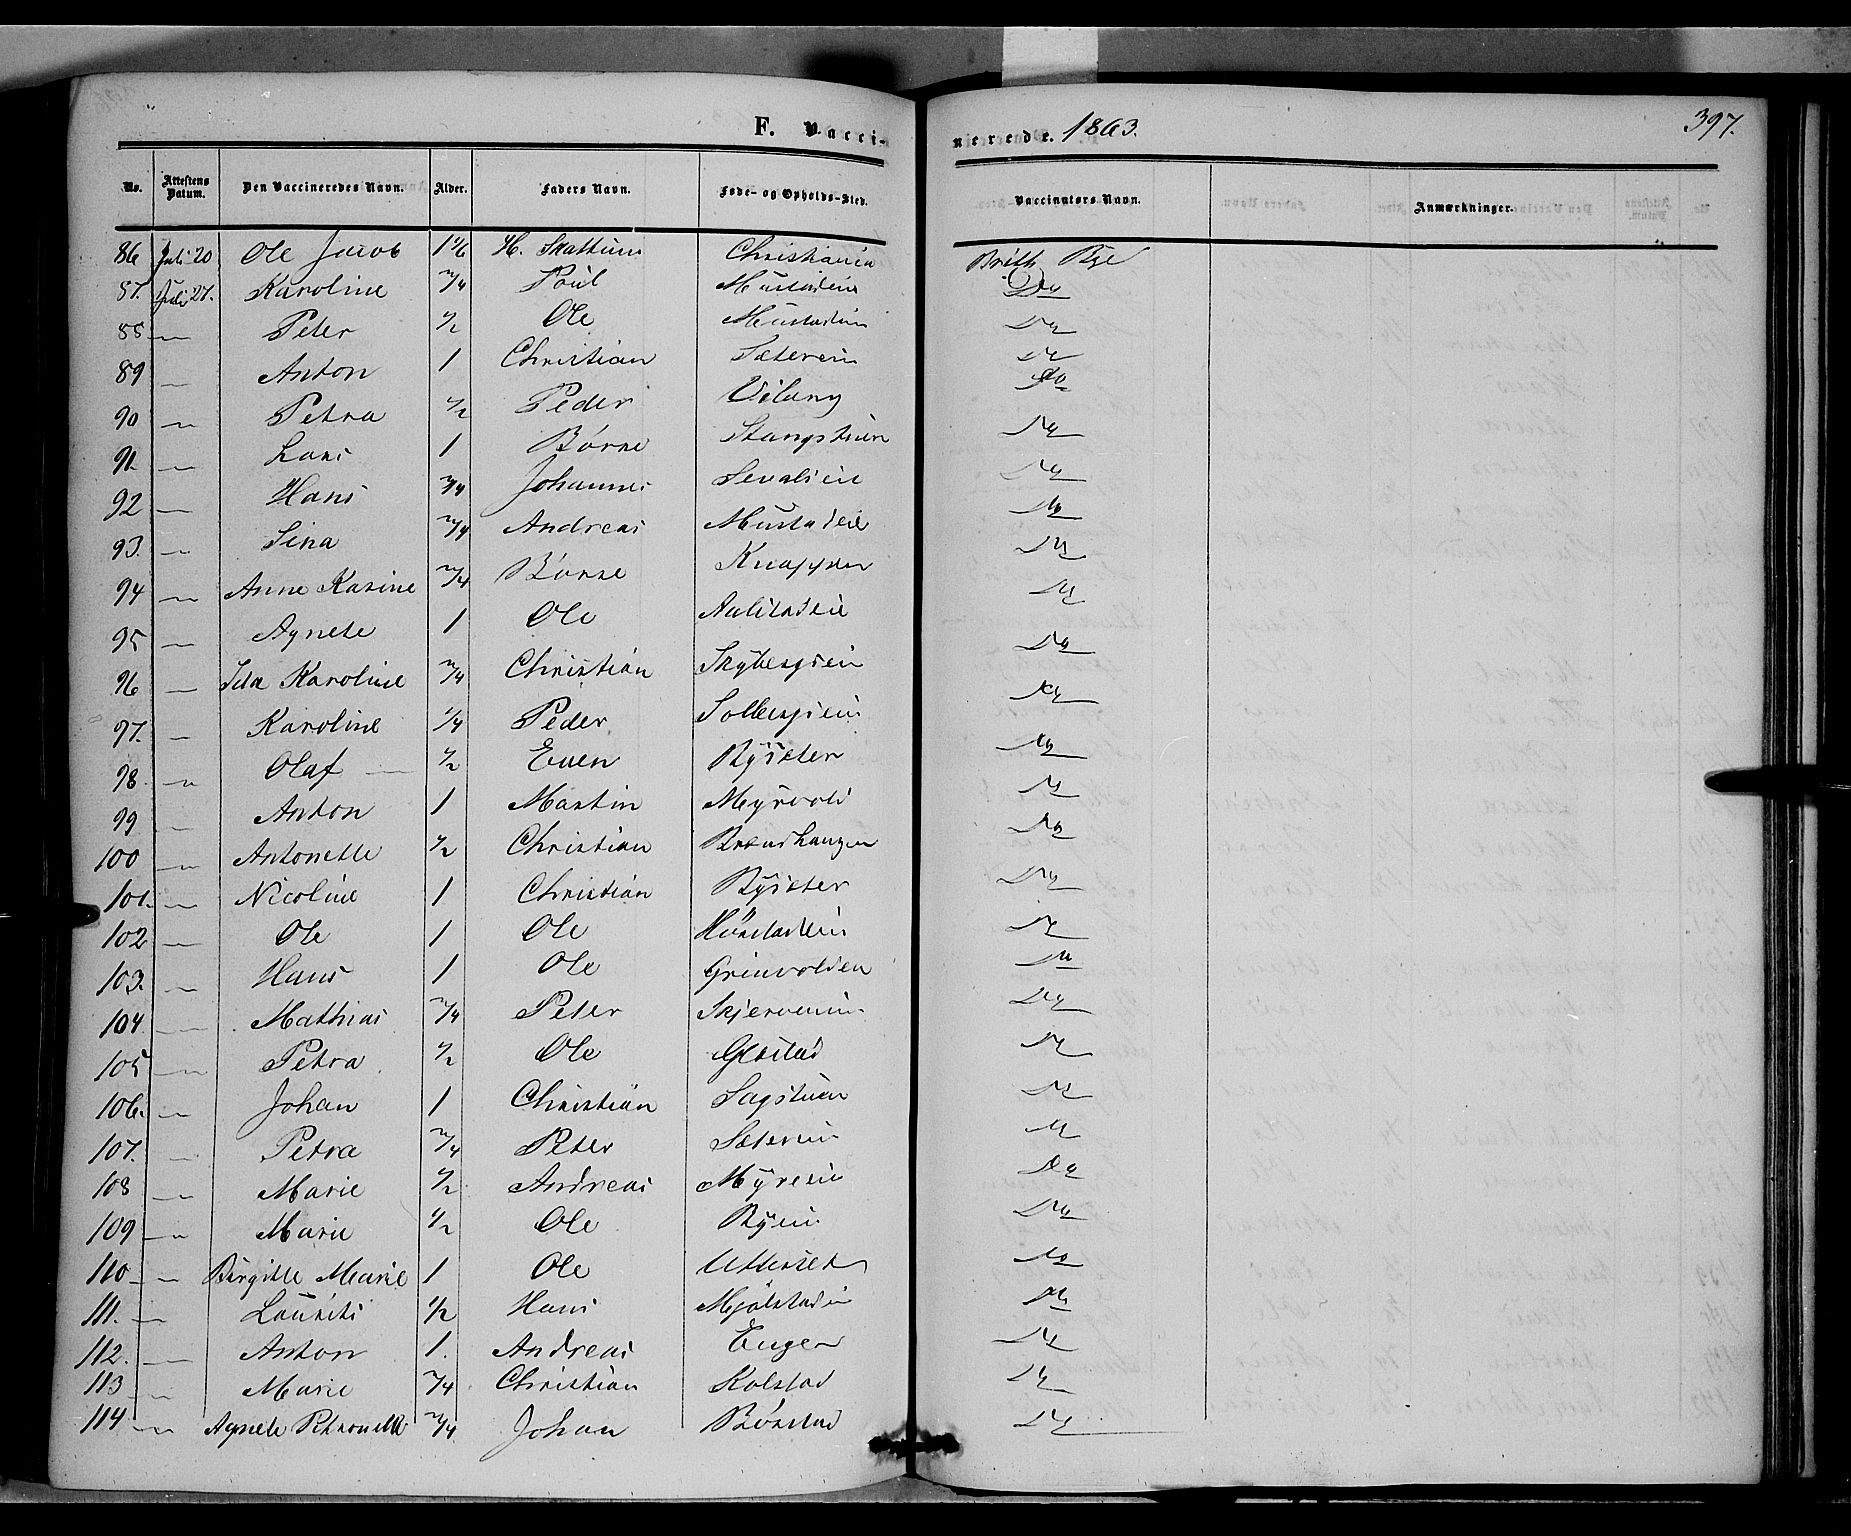 F. Vacci-
nerede. 1863.
397.
No. Attestens Datum. Den Vaccineredes Navn. Alder. Faders Navn. Føde- og Opholds-Sted. Vaccinatørs Navn. Anmærkninger.
86 Juli 20 Ole Jacob H. Skattum Christiania Brith Bye
87. Juli 27. Karoline 3/4 Poul Mustadeie Do
88 — Peter 1/2 Ole Mustadeie Do
89 — Anton 1 Christian Sætereie Do
90 — Petra 1/2 Peder Do
91 — Lars 1 Børre Stangstuen Do
92 — Hans 3/4 Johannes Do
93. — Sina 3/4 Andreas Mustadeie Do
94 — Anne Karine 3/4 Børre Knappen Do
95 — Agnete 1 Ole Do
96 — Ida Karoline 3/4 Christian Do
97. — Karoline 1/4 Peder Solbergseie Do
98 — Olaf — 1/2 Even Rÿseter Do
99 — Anton 1 Martin Myrvold Do
100 — Antonette 1/2 Christian Brændhaugen Do
101. — Nicoline 1 Christian Rÿseter Do
102 — Ole 1 Ole Do
103. — Hans 1 Ole Grinvolden Do
104 — Mathias 3/4 Peter Do
105 — Petra 1/2 Ole Do
106. — Johan 1 Christian Sagstuen Do
107. — Petra 3/4 Peter Sætereie Do
108 — Marie 1/2 Andreas Mÿreeie Do
109 — Marie 1/2 Ole Rÿeie Do
110 — Birgitte Marie 1 Ole Do
111. — Lauritz 1/2 Hans Mjølstadeie Do
112. — Anton 1. Andreas Enger Do
113 — Marie 3/4 Christian Kolstad Do
114 — Agnete Petronelle 3/4 Johan Do